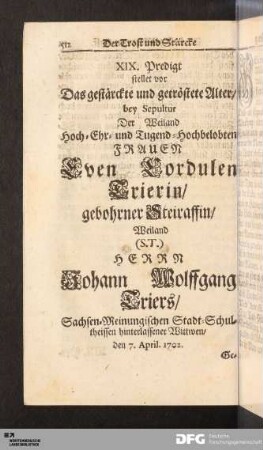 Der Trost und Stärcke
XIX. Predigt
stellet vor
Das gestärckte und getröstete Alter/
bey Sepultur
Der Weiland
Hoch-Ehr- und Tugend-Hochbelobten
FRAUEN
Even Cordulen
Trierin/
gebohrner Steiraffin/
Weiland
(S.T.)
HERRN
Johann Wolffgang
Triers/
Sachsen-Meinungischen Stadt-Schul-
theissen hinterlassener Wittwen/
den 7. April. 1702.
Ge-
DFG Deutsche
Forschungsgemeinschaft